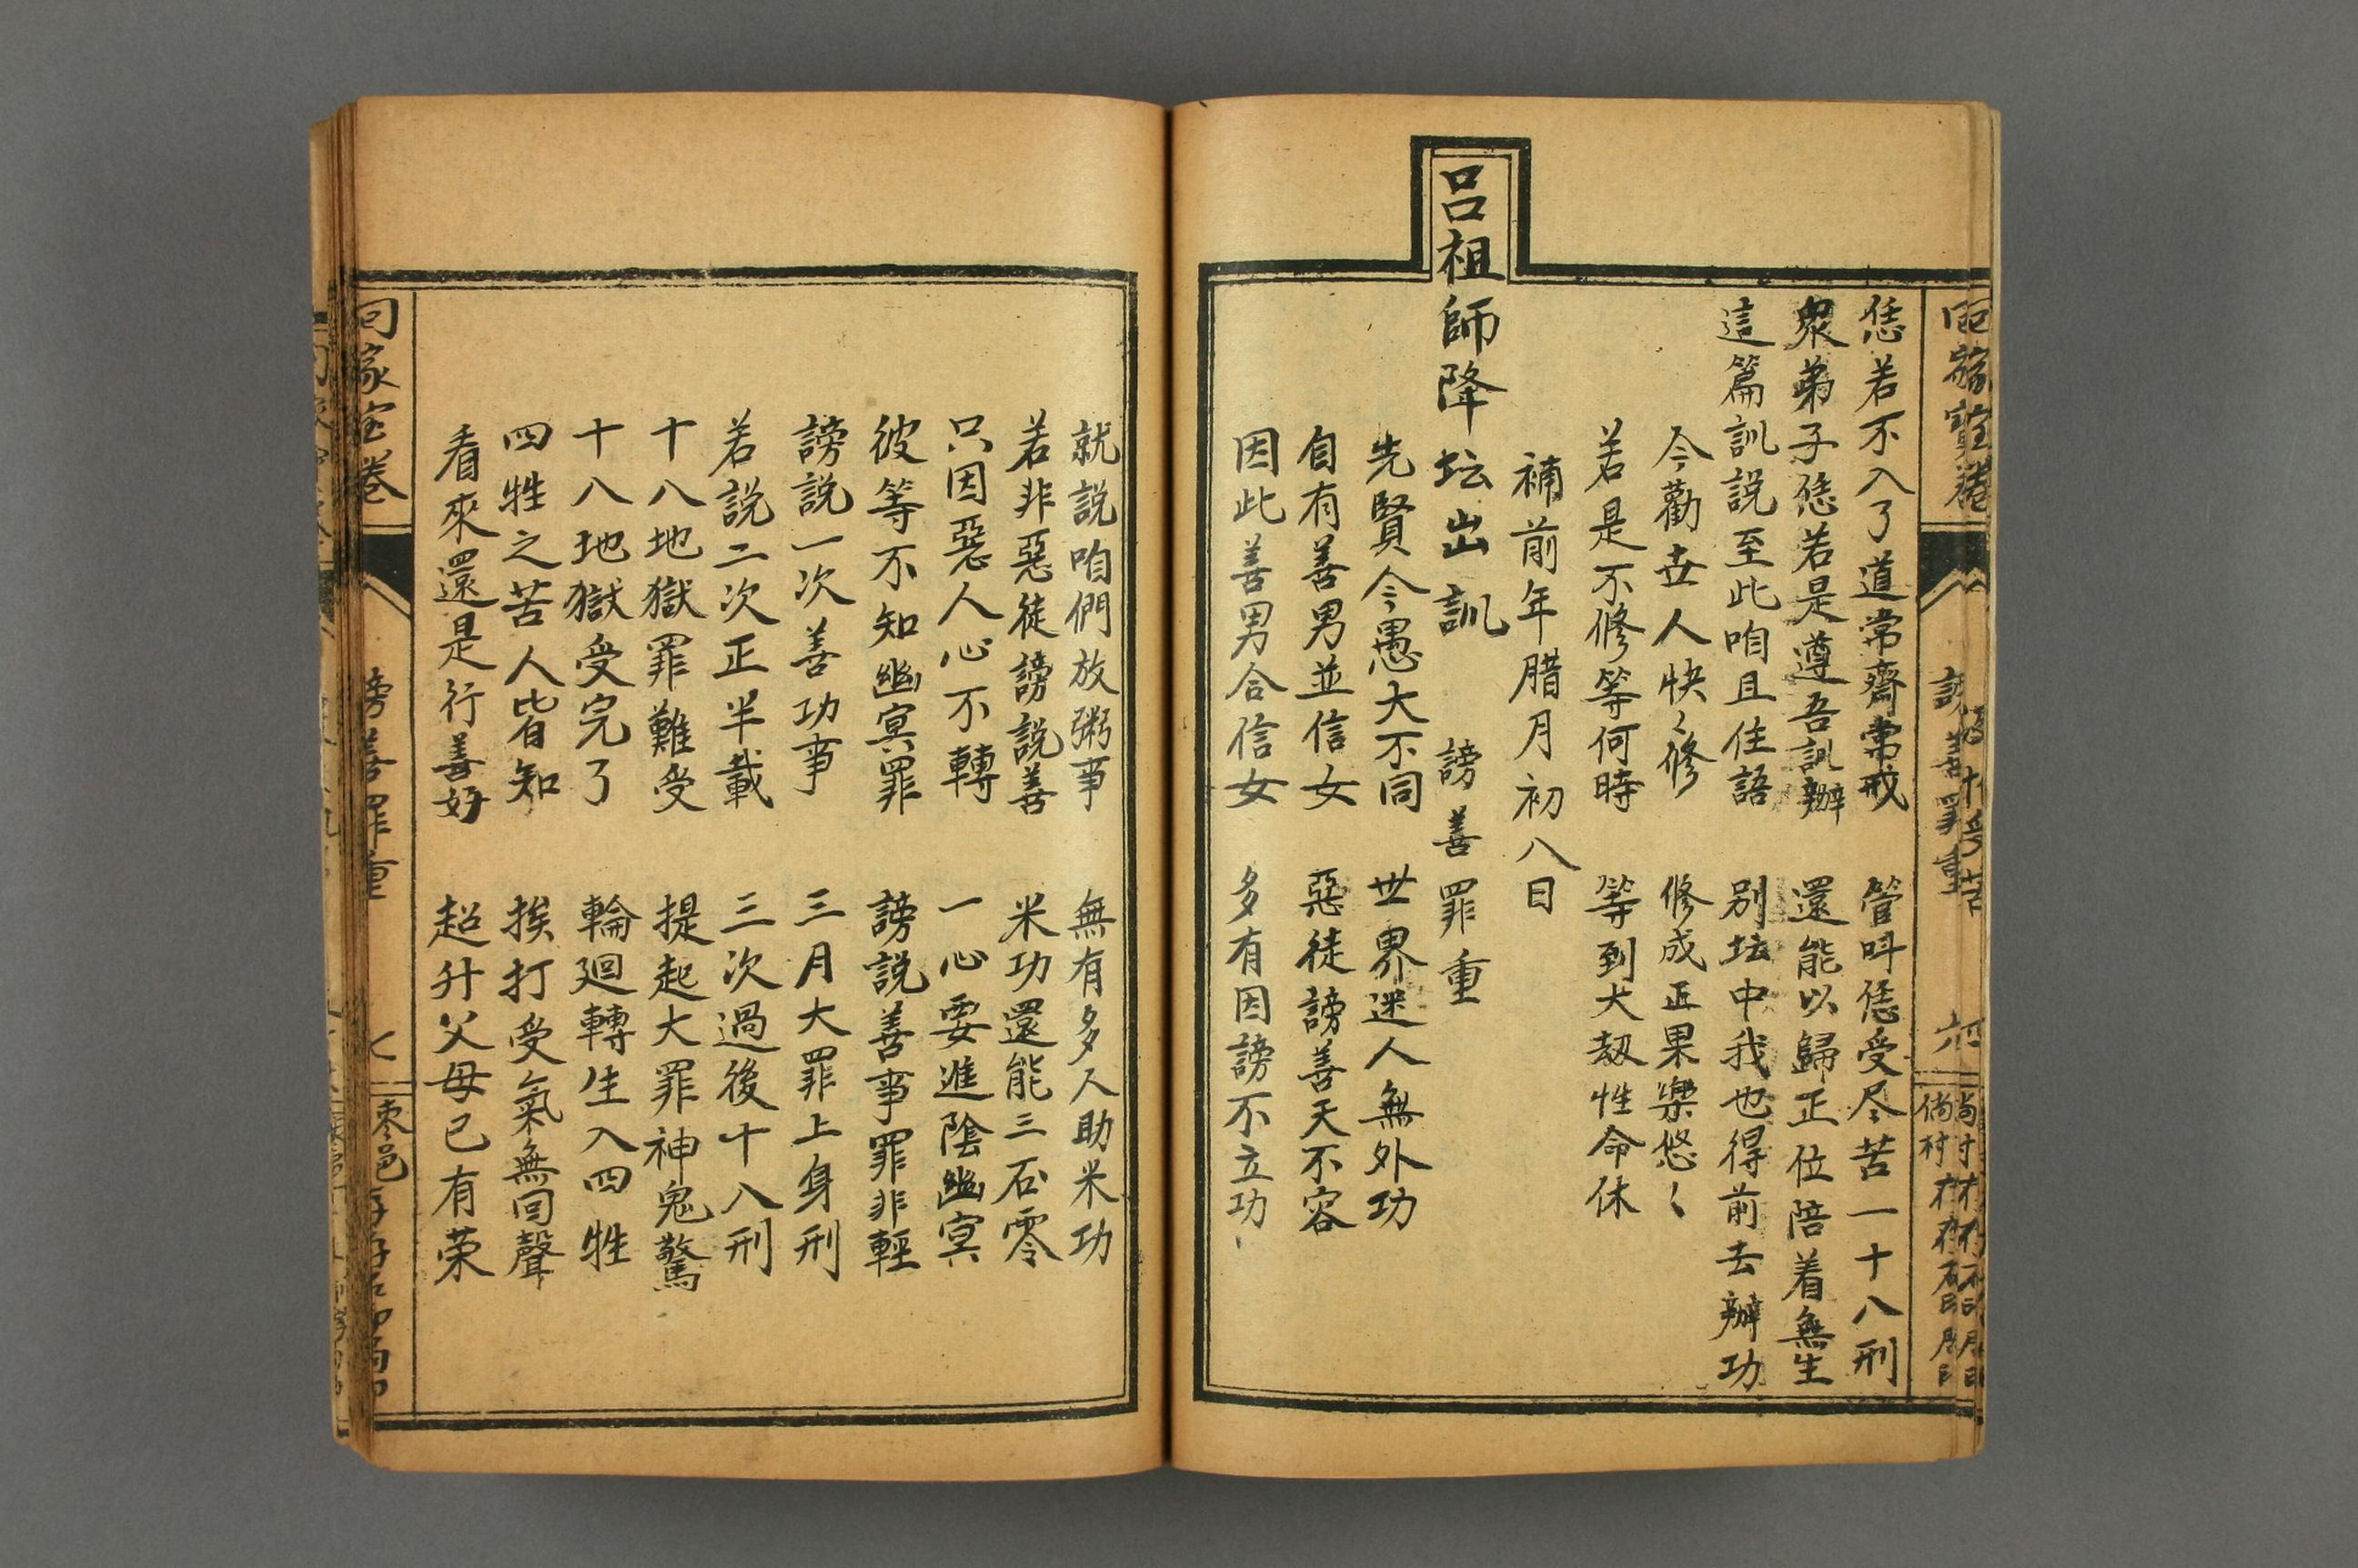 恁若不入了道常齋常戒　管呌恁受尽苦一十八刑
衆弟子恁若是遵吾訓辦　還能以歸正位陪着無生
這篇訓説至此咱且住語　别坛中我也得前去辦功
今勸世人快〻修　修成正果樂悠〻
若是不修等何時　等到大劫性命休
補前年腊月初八日
吕祖師降坛出訓　謗善罪重
先賢今愚大不同　世界迷人無外功
自有善男並信女　惡徒謗善天不容
因此善男合信女　多有因謗不立功
就説咱們放粥事　無有多人助米功
若非惡徒謗説善　米功還能三石零
只因惡人心不轉　一心要進陰幽冥
彼等不知幽冥罪　謗説善事罪非輕
謗説一次善功事　三月大罪上身刑
若説二次正半載　三次過後十八刑
十八地獄罪難受　提起大罪神鬼驚
十八地獄受完了　輪廻轉生入四牲
四牲之苦人皆知　挨打受氣無回聲
看來還是行善好　超升父母已有荣
回家宝卷
謗善罪重
七
棗邑